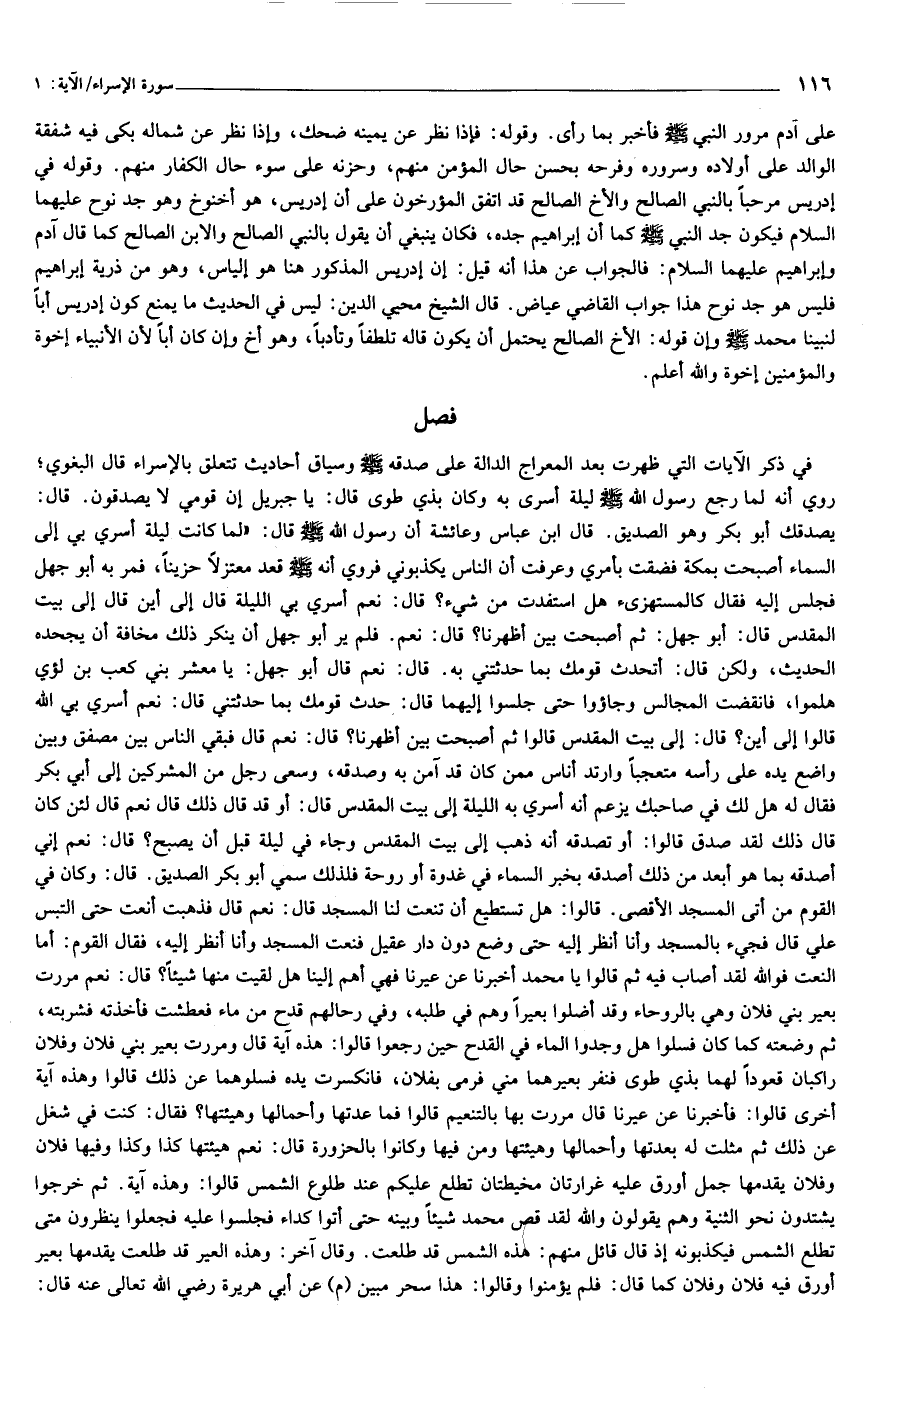 ١١٦ سورة الإسراء/ الآية: ١
على آدم مرور النبي ﷺ فأخبر بما رأى. وقوله: فإذا نظر عن يمينه ضحك، وإذا نظر عن شماله بكى فيه شفقة
الوالد على أولاده وسروره وفرحه بحسن حال المؤمن منهم، وحزنه على سوء حال الكفار منهم. وقوله في
إدريس مرحباً بالنبي الصالح والأخ الصالح قد اتفق المؤرخون على أن إدريس، هو أخنوخ وهو جد نوح عليهما
السلام فيكون جد النبي ﷺ كما أن إبراهيم جده، فكان ينبغي أن يقول بالنبي الصالح والابن الصالح كما قال آدم
وإبراهيم عليهما السلام: فالجواب عن هذا أنه قيل: إن إدريس المذكور هنا هو إلياس، وهو من ذرية إبراهيم
فليس هو جد نوح هذا جواب القاضي عياض. قال الشيخ محيي الدين: ليس في الحديث ما يمنع كون إدريس أباً
لنبينا محمد ﷺ وإن قوله: الأخ الصالح يحتمل أن يكون قاله تلطفاً وتأدباً، وهو أخ وإن كان أباً لأن الأنبياء إخوة
والمؤمنين إخوة والله أعلم.
فصل
في ذكر الآيات التي ظهرت بعد المعراج الدالة على صدقه ﷺ وسياق أحاديث تتعلق بالإسراء قال البغوي؛
روي أنه لما رجع رسول الله ﷺ ليلة أسرى به وكان بذي طوى قال: يا جبريل إن قومي لا يصدقون. قال:
يصدقك أبو بكر وهو الصديق. قال ابن عباس وعائشة أن رسول الله ﷺ قال: «لما كانت ليلة أسري بي إلى
السماء أصبحت بمكة فضقت بأمري وعرفت أن الناس يكذبوني فروي أنه ﷺ قعد معتزلاً حزيناً، فمر به أبو جهل
فجلس إليه فقال كالمستهزىء هل استفدت من شيء؟ قال: نعم أسري بي الليلة قال إلى أين قال إلى بيت
المقدس قال: أبو جهل: ثم أصبحت بين أظهرنا؟ قال: نعم. فلم ير أبو جهل أن ينكر ذلك مخافة أن يجحده
الحديث، ولكن قال: أتحدث قومك بما حدثتني به. قال: نعم قال أبو جهل: يا معشر بني كعب بن لؤي
هلموا، فانقضت المجالس وجاؤوا حتى جلسوا إليهما قال: حدث قومك بما حدثتني قال: نعم أسري بي الله
قالوا إلى أين؟ قال: إلى بيت المقدس قالوا ثم أصبحت بين أظهرنا؟ قال: نعم قال فبقي الناس بين مصفق وبين
واضع يده على رأسه متعجباً وارتد أناس ممن كان قد آمن به وصدقه، وسعى رجل من المشركين إلى أبي بكر
فقال له هل لك في صاحبك يزعم أنه أسري به الليلة إلى بيت المقدس قال: أو قد قال ذلك قال نعم قال لئن كان
قال ذلك لقد صدق قالوا: أو تصدقه أنه ذهب إلى بيت المقدس وجاء في ليلة قبل أن يصبح؟ قال: نعم إني
أصدقه بما هو أبعد من ذلك أصدقه بخبر السماء في غدوة أو روحة فلذلك سمي أبو بكر الصديق. قال: وكان في
القوم من أتى المسجد الأقصى. قالوا: هل تستطيع أن تنعت لنا المسجد قال: نعم قال فذهبت أنعت حتى التبس
علي قال فجيء بالمسجد وأنا أنظر إليه حتى وضع دون دار عقيل فنعت المسجد وأنا أنظر إليه، فقال القوم: أما
النعت فوالله لقد أصاب فيه ثم قالوا يا محمد أخبرنا عن عيرنا فهي أهم إلينا هل لقيت منها شيئاً؟ قال: نعم مررت
بعير بني فلان وهي بالروحاء وقد أضلوا بعيراً وهم في طلبه، وفي رحالهم قدح من ماء فعطشت فأخذته فشربته،
ثم وضعته كما كان فسلوا هل وجدوا الماء في القدح حين رجعوا قالوا: هذه آية قال ومررت بعير بني فلان وفلان
راكبان قعوداً لهما بذي طوى فنفر بعيرهما مني فرمى بفلان، فانكسرت يده فسلوهما عن ذلك قالوا وهذه آية
أخرى قالوا: فأخبرنا عن عيرنا قال مررت بها بالتنعيم قالوا فما عدتها وأحمالها وهيئتها؟ فقال: كنت في شغل
عن ذلك ثم مثلت له بعدتها وأحمالها وهيئتها ومن فيها وكانوا بالحزورة قال: نعم هيئتها كذا وكذا وفيها فلان
وفلان يقدمها جمل أورق عليه غرارتان مخيطتان تطلع عليكم عند طلوع الشمس قالوا: وهذه آية. ثم خرجوا
يشتدون نحو الثنية وهم يقولون والله لقد قص محمد شيئاً وبينه حتى أتوا كداء فجلسوا عليه فجعلوا ينظرون متى
تطلع الشمس فيكذبونه إذ قال قائل منهم: هذه الشمس قد طلعت. وقال آخر: وهذه العير قد طلعت يقدمها بعير
أورق فيه فلان وفلان كما قال: فلم يؤمنوا وقالوا: هذا سحر مبين (م) عن أبي هريرة رضي الله تعالى عنه قال: